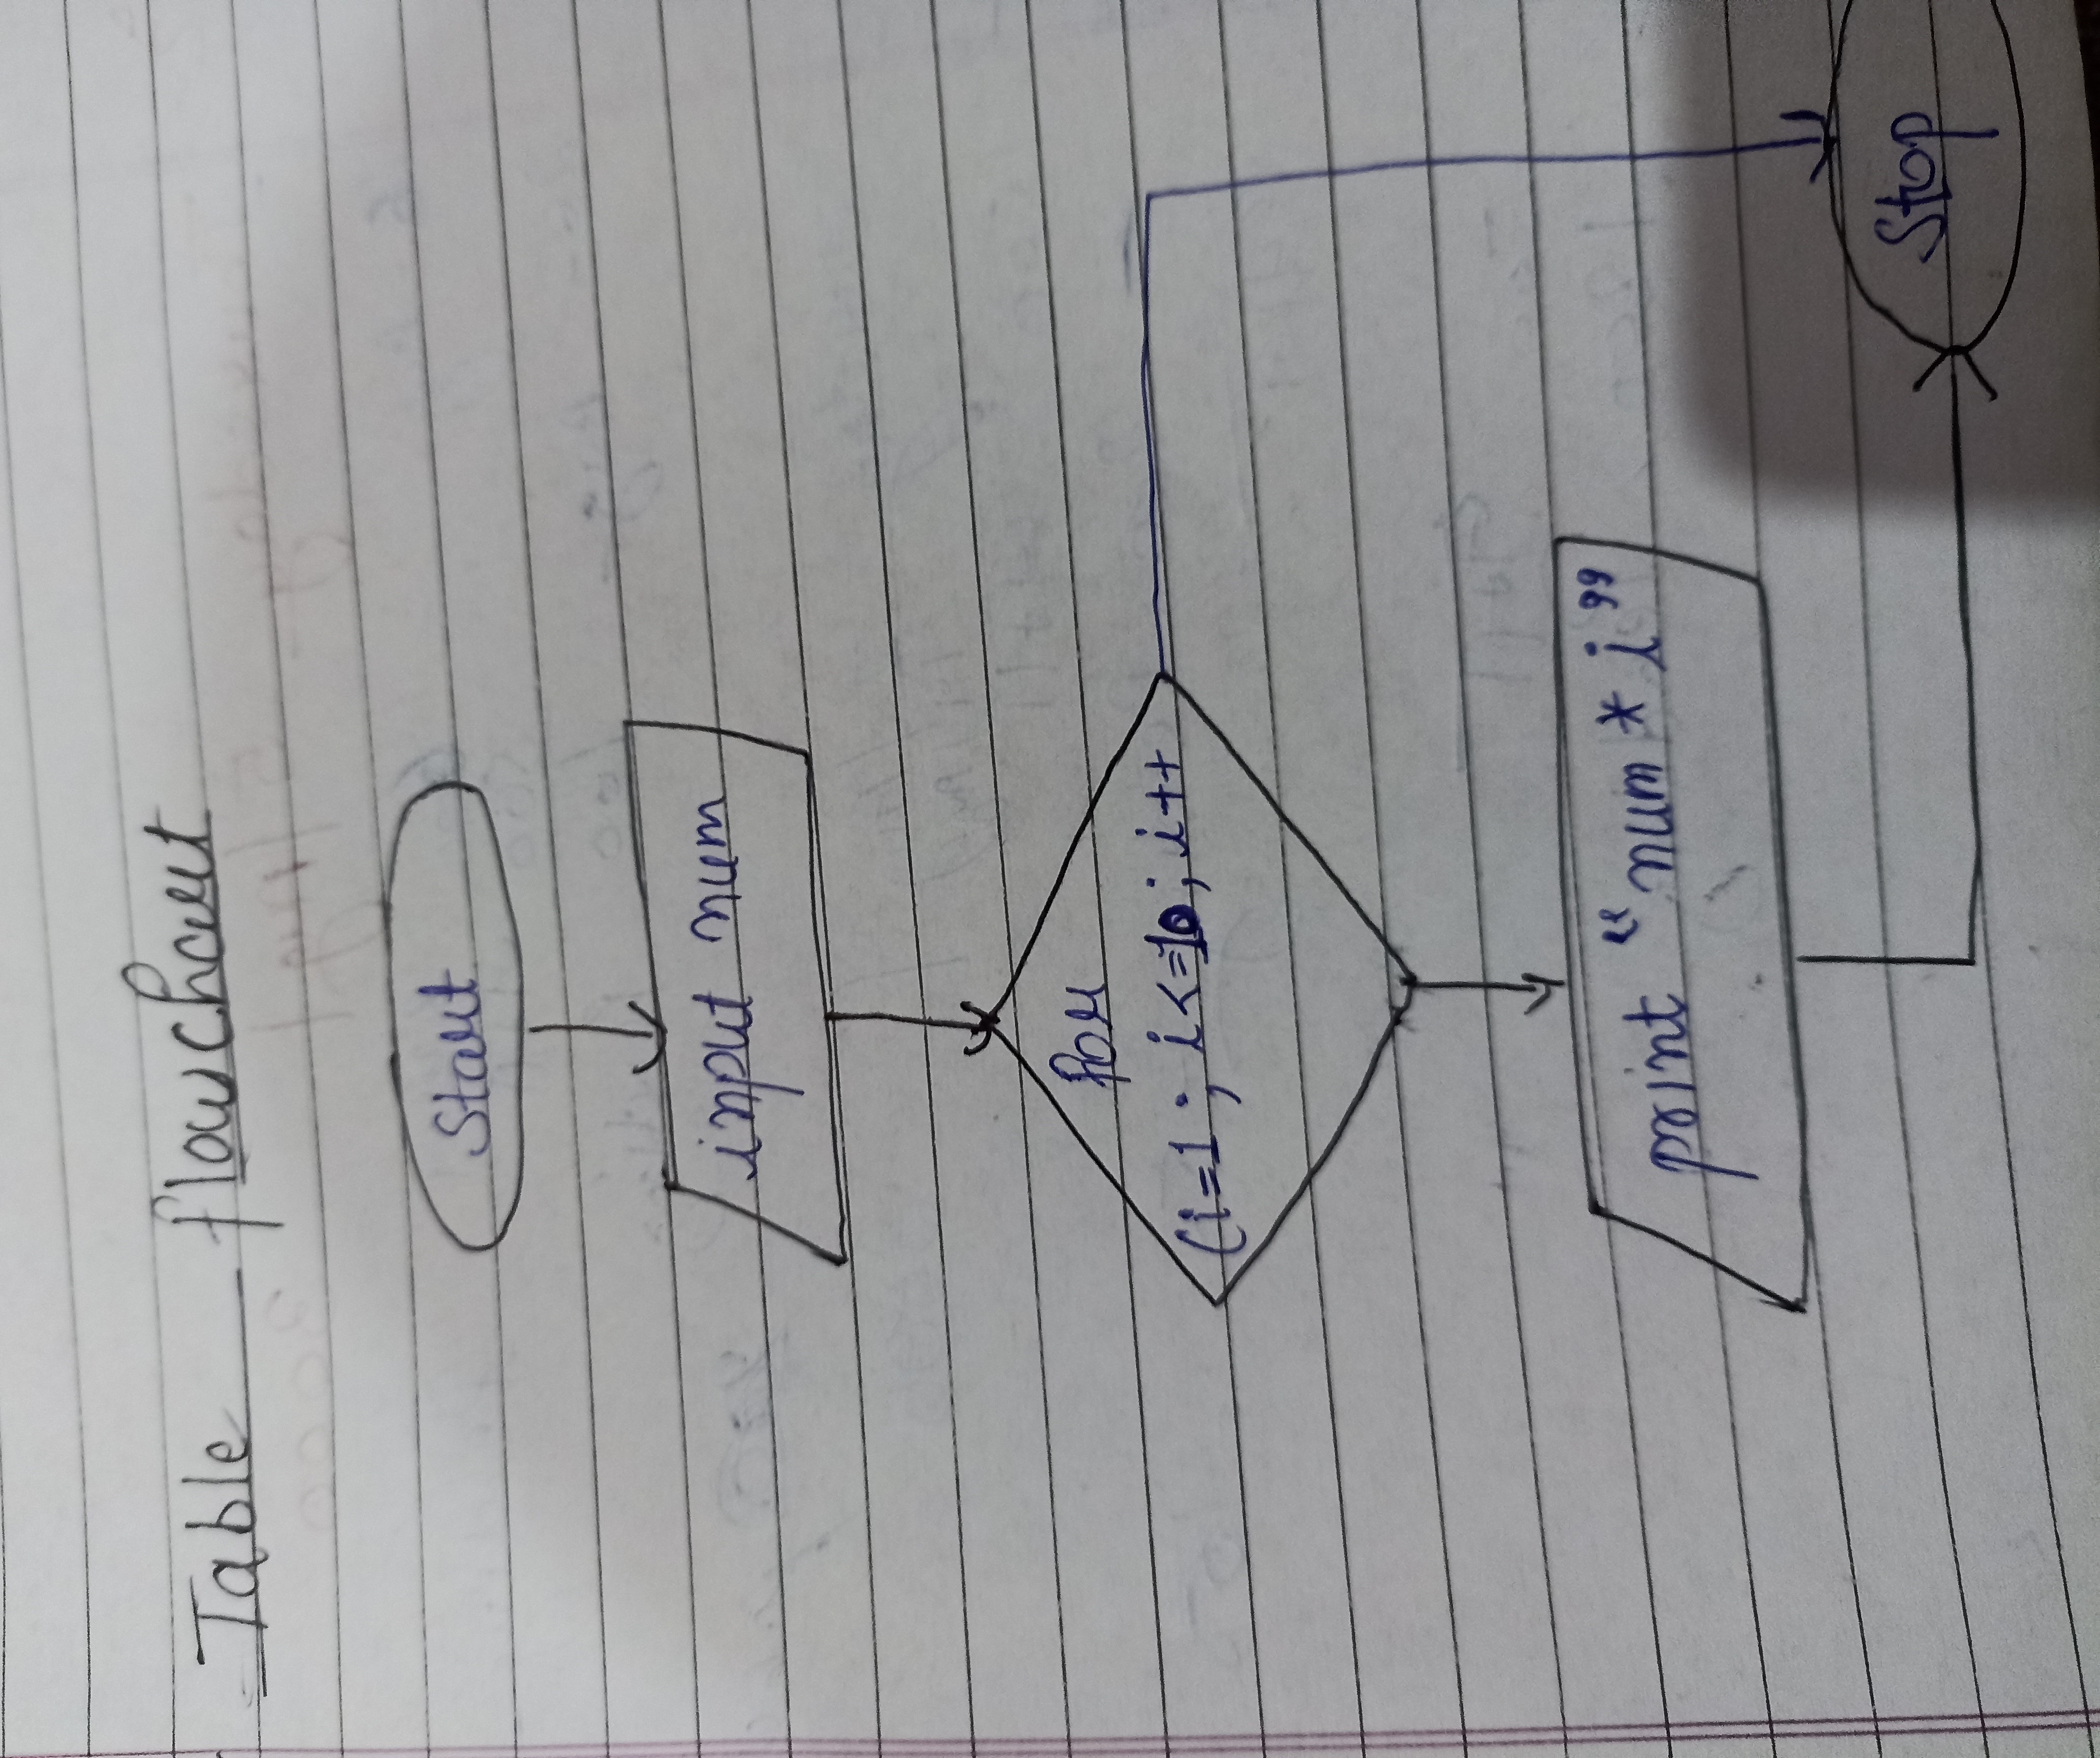 Table flowchart
Start
input num
for
(i=1; i<=10; i++
print "num * i"
Stop